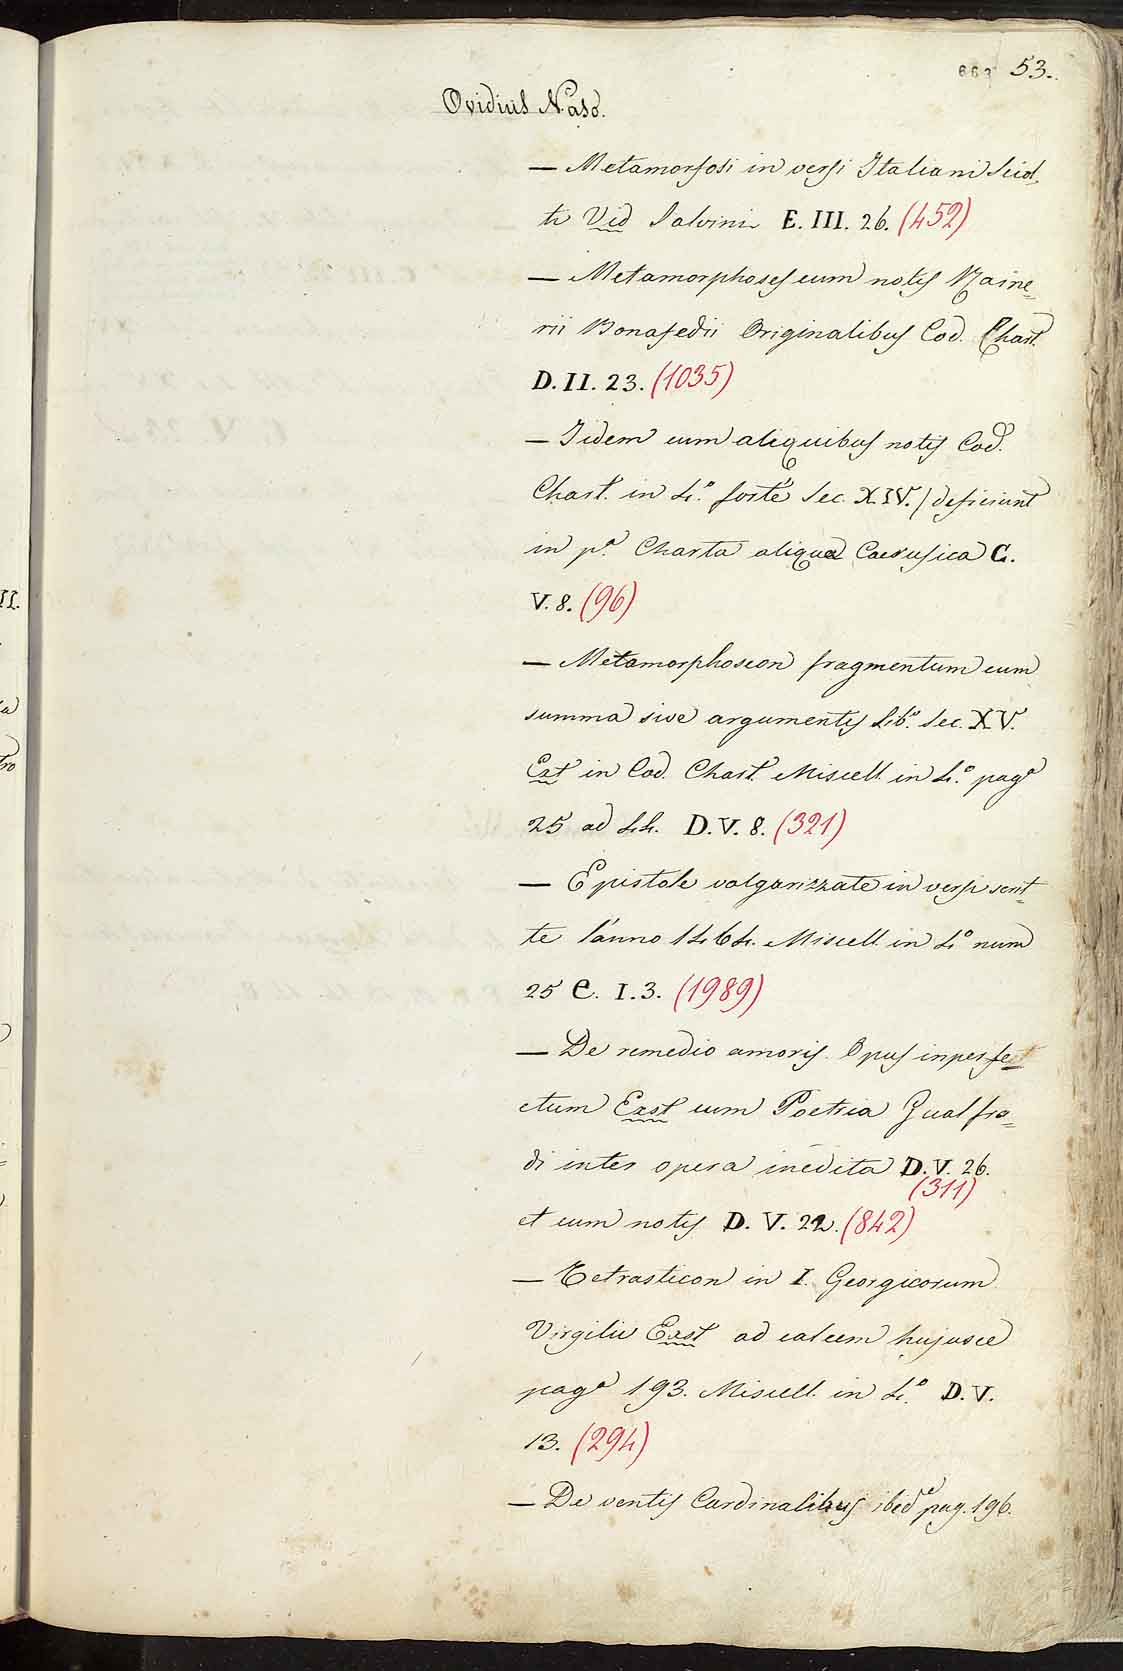 663 53.
Ovidius Naso.
— Metamorfosi in versi Italiani
ti Vid Salvini E. III. 26. (452)
— Metamorphoses cum notis Raine-
rii Bonafedii Originalibus Cod. Chart.
D. II. 23. (1035)
— Iidem cum aliquibus notis Cod.
Chart. in 4.º fortè Sec. XIV. / deficiunt
in p.ª Charta aliqua C.
V. 8. (96)
— Metamorphoseon fragmentum cum
summa sive argumentis Lib.º Sec. XV.
Ext in Cod. Chart. Miscell. in 4.º pagª
25 ad 44. D. V. 8. (321)
— Epistole volgarizzate in versi scrit-
te l'anno 1464. Miscell. in 4º num
25 C. I. 3. (1989)
— De remedio amoris. Opus inperfe=
ctum Exst cum Poetria Gualfre=
di inter opera inedita D. V. 26.
(311)
et cum notis D. V. 22. (842)
— Tetrasticon in I. Georgicorum
Virgilii Exst ad calcem hujusce
pagª 193. Miscell. in 4.º D. V.
13. (294)
— De ventis Cardinalibus ibidº pag. 196.
II.